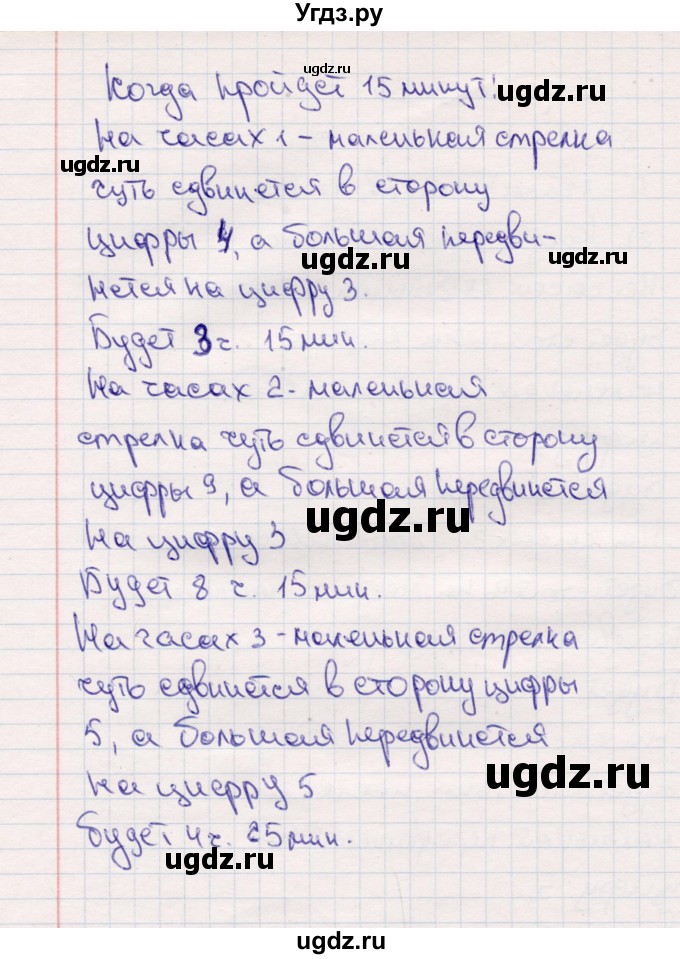 Угдз.ру
ugdz.ru
Когда пройдёт 15 минут:
ugdz.ru
На часах 1 - маленькая стрелка
ugdz.ru
чуть сдвинется в сторону
цифры 4, а большая передви-
ugdz.ru
ugdz.ru
нется на цифру 3.
Будет 3 ч. 15 мин.
На часах 2 - маленькая
стрелка чуть сдвинется в сторону
цифры 9, а большая передвинется
ugdz.ru
На цифру 3
Будет 8 ч. 15 мин.
На часах 3 - маленькая стрелка
чуть сдвинется в сторону цифры
5, а большая передвинется
ugdz.ru
На цифру 5
будет 4 ч. 25 мин.
ugdz.ru
ugdz.ru